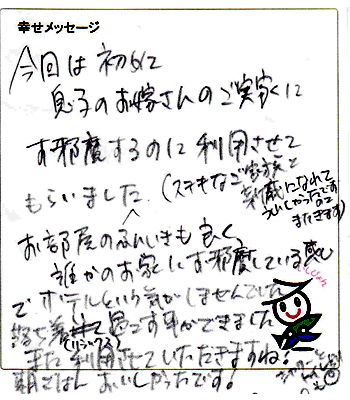 幸せメッセージ
今回は初めて
息子のお嫁さんのご実家に
お邪魔するのに利用させて
もらいました。(ステキなご家族と
親戚になれて
うれしかったです
またきます)
お部屋のふんいきも良く、
誰かのお家にお邪魔している感じ
でホテルという気がしませんでした
落ち着いて過ごす事ができました
(リラックス)
また利用させていただきますね!
朝ごはんおいしかったです!